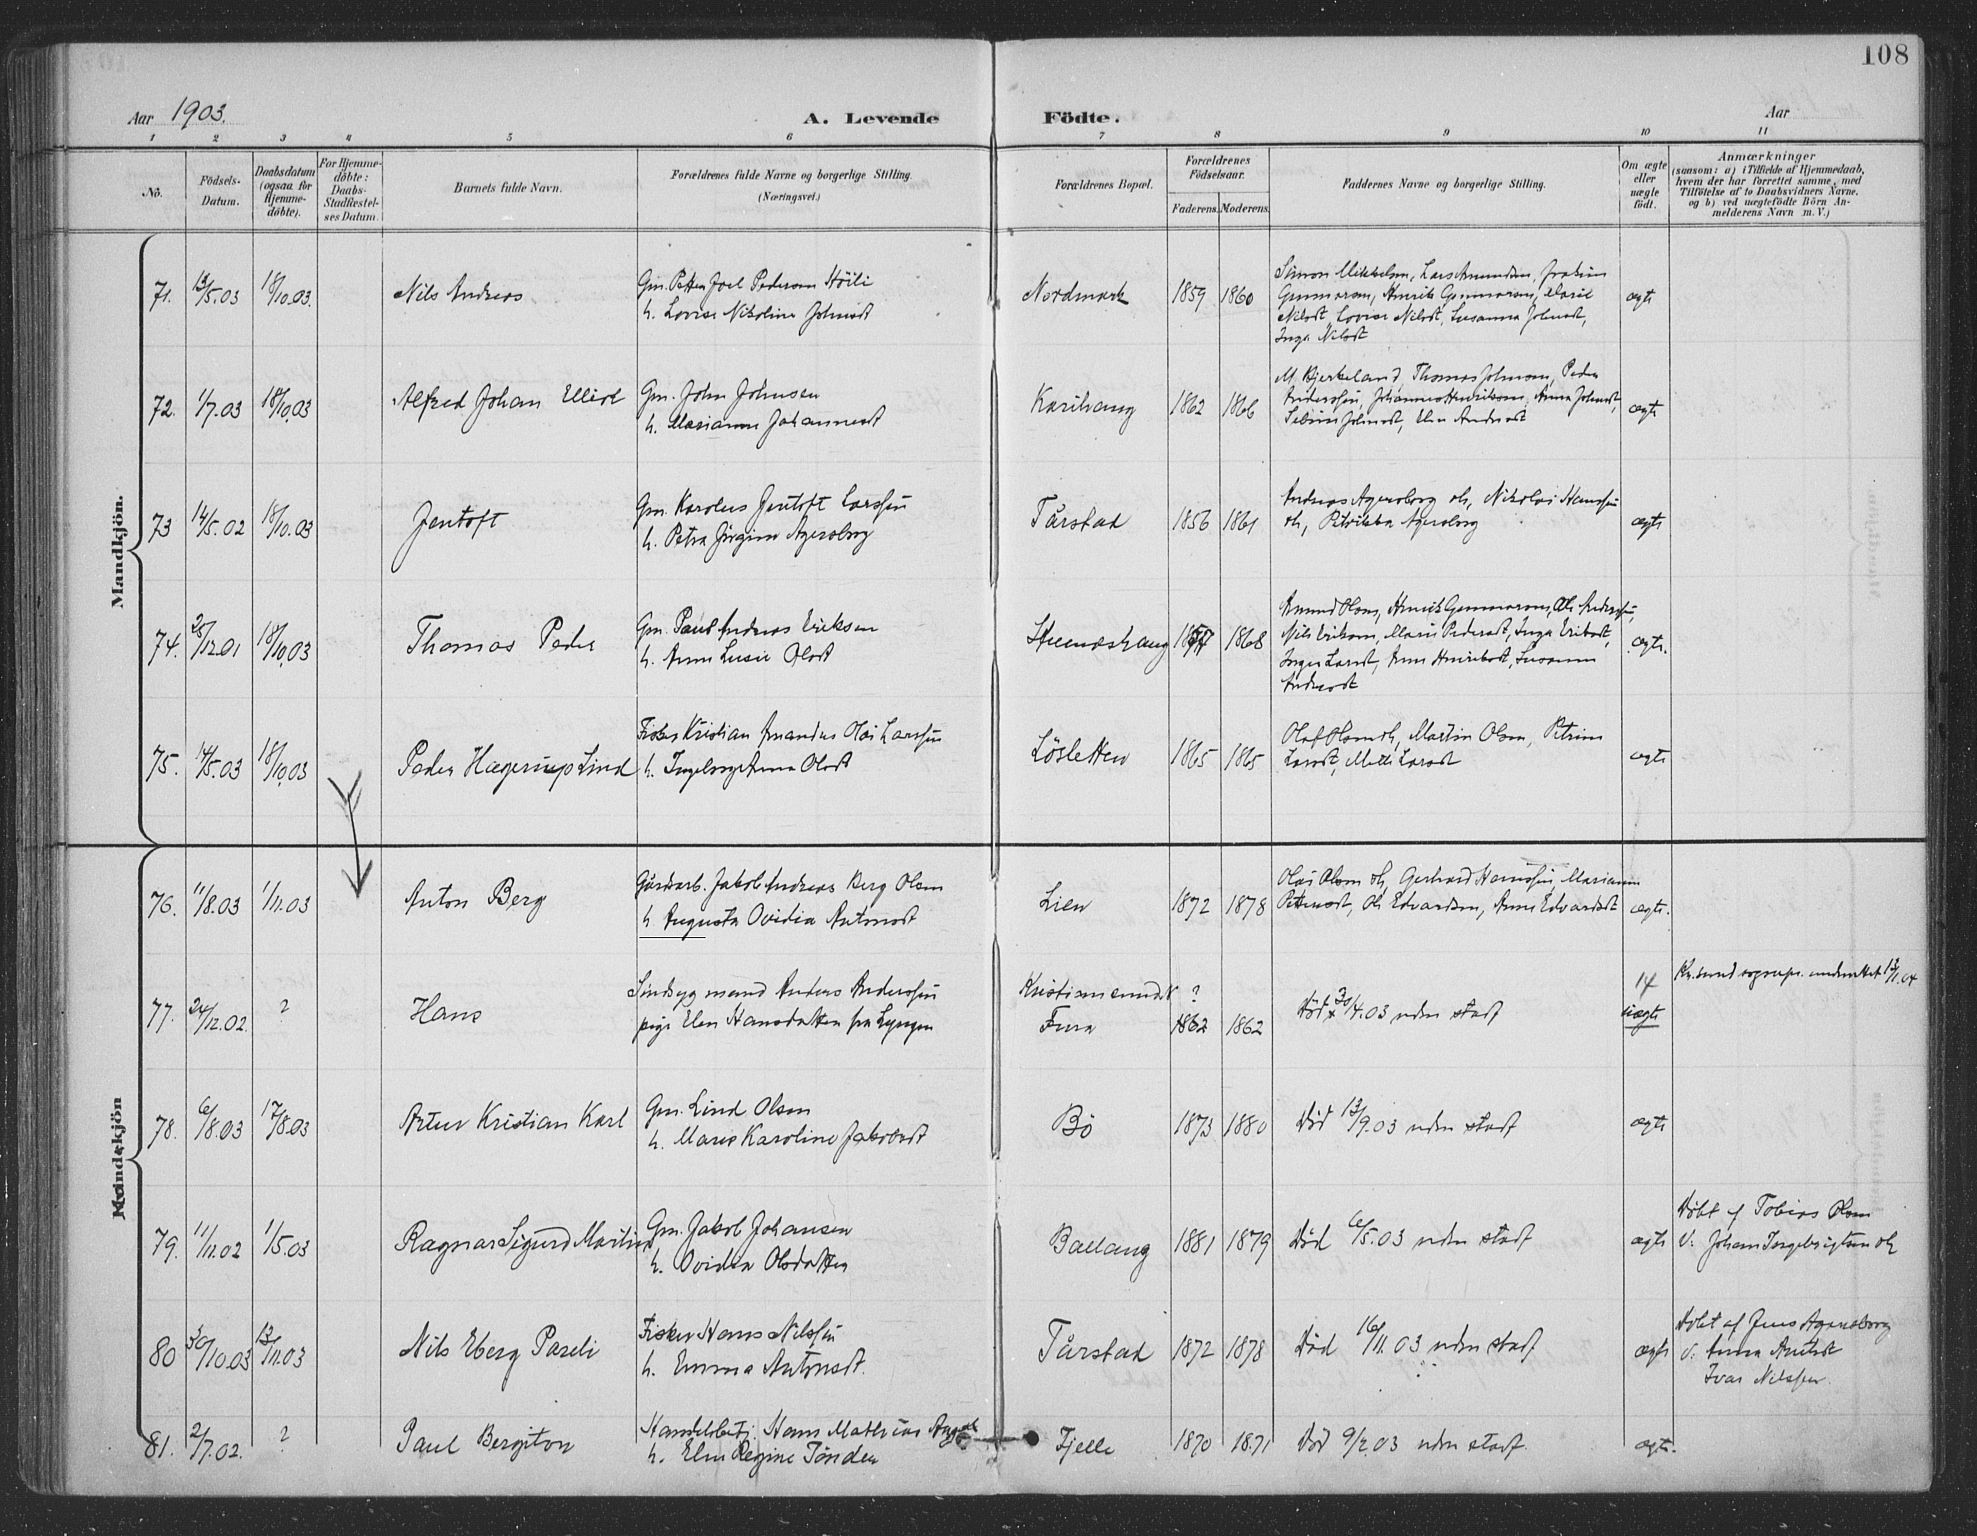 108
Aar 1903.
A. Levende Födte.
Aar
1 2 3 4 5 6 7 8 9 10 11
No.
Födsels-Datum.
Daabsdatum (ogsaa for Hjemme-döbte).
For Hjemme-döbte: Daabs-Stadfæstel-ses Datum.
Barnets fulde Navn.
Forældrenes fulde Navne og borgerlige Stilling. (Næringsvei.)
Forældrenes Bopæl.
Forældrenes Födselsaar.
Faderens. Moderens.
Faddernes Navne og borgerlige Stilling.
Om ægte eller uægte födt.
Anmærkninger
(saasom: a) i Tilfælde af Hjemmedaab,
hvem der har forrettet samme, med
Tilföielse af to Daabsvidners Navne,
og b) ved uægtefödte Börn An-
melderens Navn m. V.)
Mandkjön.
71. 13/5.03 18/10.03 Nils Andreas
Gm. Petter Joel Pedersen Höili
h. Lovise Nikoline Johnsdt
Nordmark 1859 1860
Simon Mikkelsen, Lars Amundsen, Joakim
Gunnarsen, Henrik Gunnarsen, Marie
Nilsdt, Lovise Nilsdt, Susanna Johnsdt,
Inga Nilsdt
ægte
72. 1/7.03 18/10.03 Alfred Johan Elliot
Gm. John Johnsen
h. Marianne Johannesdt
Karihaug 1862 1866
M. Kjerkeland, Thomas Johnsen, Peder
Anderssen, Johannes Henriksen, Anna Johnsdt,
Johnsdt, Elen Andersdt
ægte
73 14/5.02 18/10.03 Jentoft
Gm. Karolus Jentoft Larssen
h. Petra Jörgine Agersborg
Tårstad 1856 1861
Andreas Agersborg oh, Nikolai Hanssen
oh, Agersborg
ægte
74. 28/12.01 18/10.03 Thomas Peder
Gm. Paul Andreas Eriksen
h. Anna Lusie Olsdt
1868
Amund Olsen, Henrik Gunnarsen, Ole Anderssen,
Nils Eriksen, Marie Pedersdt, Inga Eriksdt,
Inger Larsdt, Anna Henriksdt, Susanna
Andersdt
ægte.
75. 14/5.03 18/10.03 Peder Hagerup Lind
Fisker Kristian Amandus Olai Larssen
h. Ingeborg Anna Olsdt
Lösletten 1865 1865
Olaf Olsen oh, Martin Olsen, Petrine
Larsdt, Mette Larsdt
ægte
Kvindekjön
76. 11/8.03 1/11.03 Anton Berg
Gårdarb. Jakob Andreas Berg Olsen
h. Augusta Ovidia Antonsdt
Lien 1872 1878
Olai Olsen oh, Gerhard Hanssen, Marianne
Pettersdt, Ole Edvardsen, Anne Edvardsdt
ægte.
77. 24/12.02. ? Hans
Sindsyg mand Anders Anderssen
pige Elen Hansdatter fra Lyngen
Kristiansund N ?
1862 1862
Död 30/4.03 uden stadf
14
uægte
Kr.sund sognepr. underrettet 13/1.04
78. 6/8.03 17/8.03 Artur Kristian Karl
Gm. Lind Olsen
h. Marie Karoline Jakobsdt
Bö 1873 1880
Död 13/9.03 uden stadf
ægte
79. 11/11.02 1/5.03 Ragnar Sigurd Martin
Gm. Jakob Johansen
h. Ovidia Olsdatter
Ballang 1881 1879
Död 6/5.03 uden stadf
ægte
Döbt af Tobias Olsen
v. Johan Ingebrigtsen oh
80 30/10.03 13/11.03 Nils Eberg Pareli
Fisker Hans Nilssen
h. Emma Antonsdt.
Tårstad 1872 1878
Död 16/11.03 uden stadf
ægte
Döbt af Jens Agersborg
v. Anna
Ivar Nilssen.
81. 2/7.02. ? Paul Bergiton
Handelsbetj. Hans Mathias
h. Elen Regine Tönder
Fjelle 1870 1871
Död 9/2.03 uden stadf.
ægte.